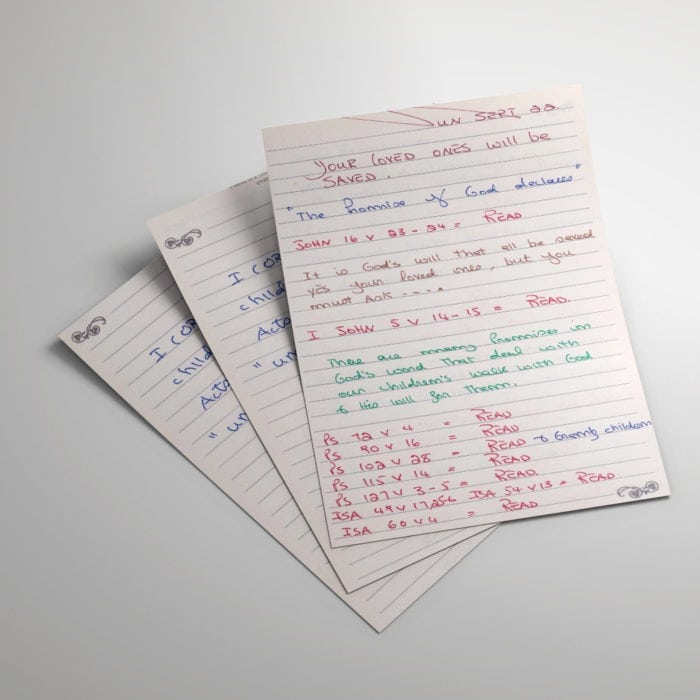 SUN SEPT 22.
YOUR LOVED ONES will be
SAVED.
"The Promise of God declares"
JOHN 16 v 23 - 24 = READ
It is God's will that all be saved
yes your loved ones, but you
must Ask ----
I JOHN 5 v 14-15 = READ.
There are many Promises in
God's word that deal with
our children's walk with God
& His will for Them.
PS 72 v 4 = READ
PS 90 v 16 = READ
PS 102 v 28 = READ → children
PS 115 v 14 = READ
PS 127 v 3-5 = READ
ISA 49 v 17,25-6 ISA 54 v 13 = READ
ISA 60 v 4 = READ
I COR
child
Acts
"un
I COR
child
Acts
"un